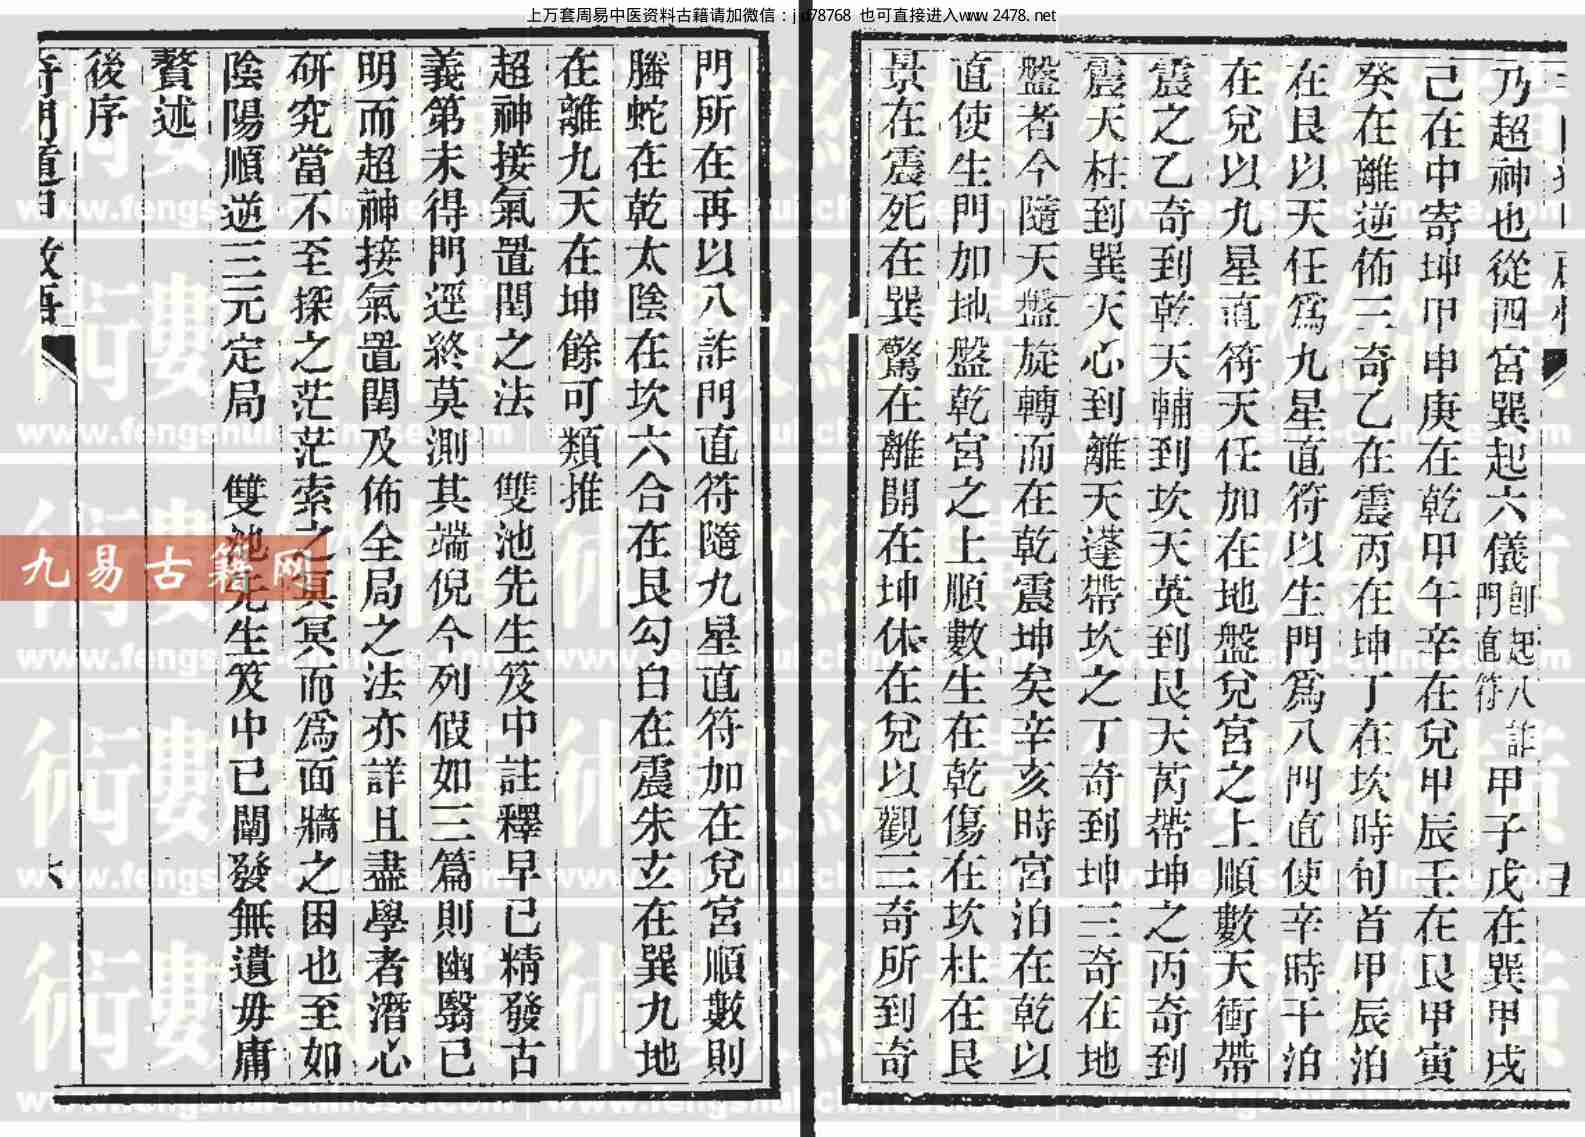 上万套周易中医资料古籍请加微信：jyd78768 也可直接进入www.2478.net
乃超神也從四宮巽起六儀卽起八詐門直符甲子戊在巽甲戌
己在中寄坤甲申庚在乾甲午辛在兌甲辰壬在艮甲寅
癸在離逆佈三奇乙在震丙在坤丁在坎時旬首甲辰泊
在艮以天任爲九星直符以生門爲八門直使辛時干泊
在兌以九星直符天任加在地盤兌宮之上順數天衝帶
震之乙奇到乾天輔到坎天英到艮天芮帶坤之丙奇到
震天柱到巽天心到離天蓬帶坎之丁奇到坤三奇在地
盤者今隨天盤旋轉而在乾震坤矣辛亥時宮泊在乾以
直使生門加地盤乾宮之上順數生在乾傷在坎杜在艮
景在震死在巽驚在離開在坤休在兌以觀三奇所到奇
門所在再以八詐門直符隨九星直符加在兌宮順數則
螣蛇在乾太陰在坎六合在艮勾白在震朱玄在巽九地
在離九天在坤餘可類推
超神接氣置閏之法 雙池先生笈中註釋早已精發古
義第未得門逕終莫測其端倪今列假如三篇則幽翳已
明而超神接氣置閏及佈全局之法亦詳且盡學者潛心
研究當不至探之茫茫索之冥冥而爲面牆之困也至如
陰陽順逆三元定局 雙池先生笈中已闡發無遺毋庸
贅述
後序
九易古籍网
www.fengshui-chinese.com